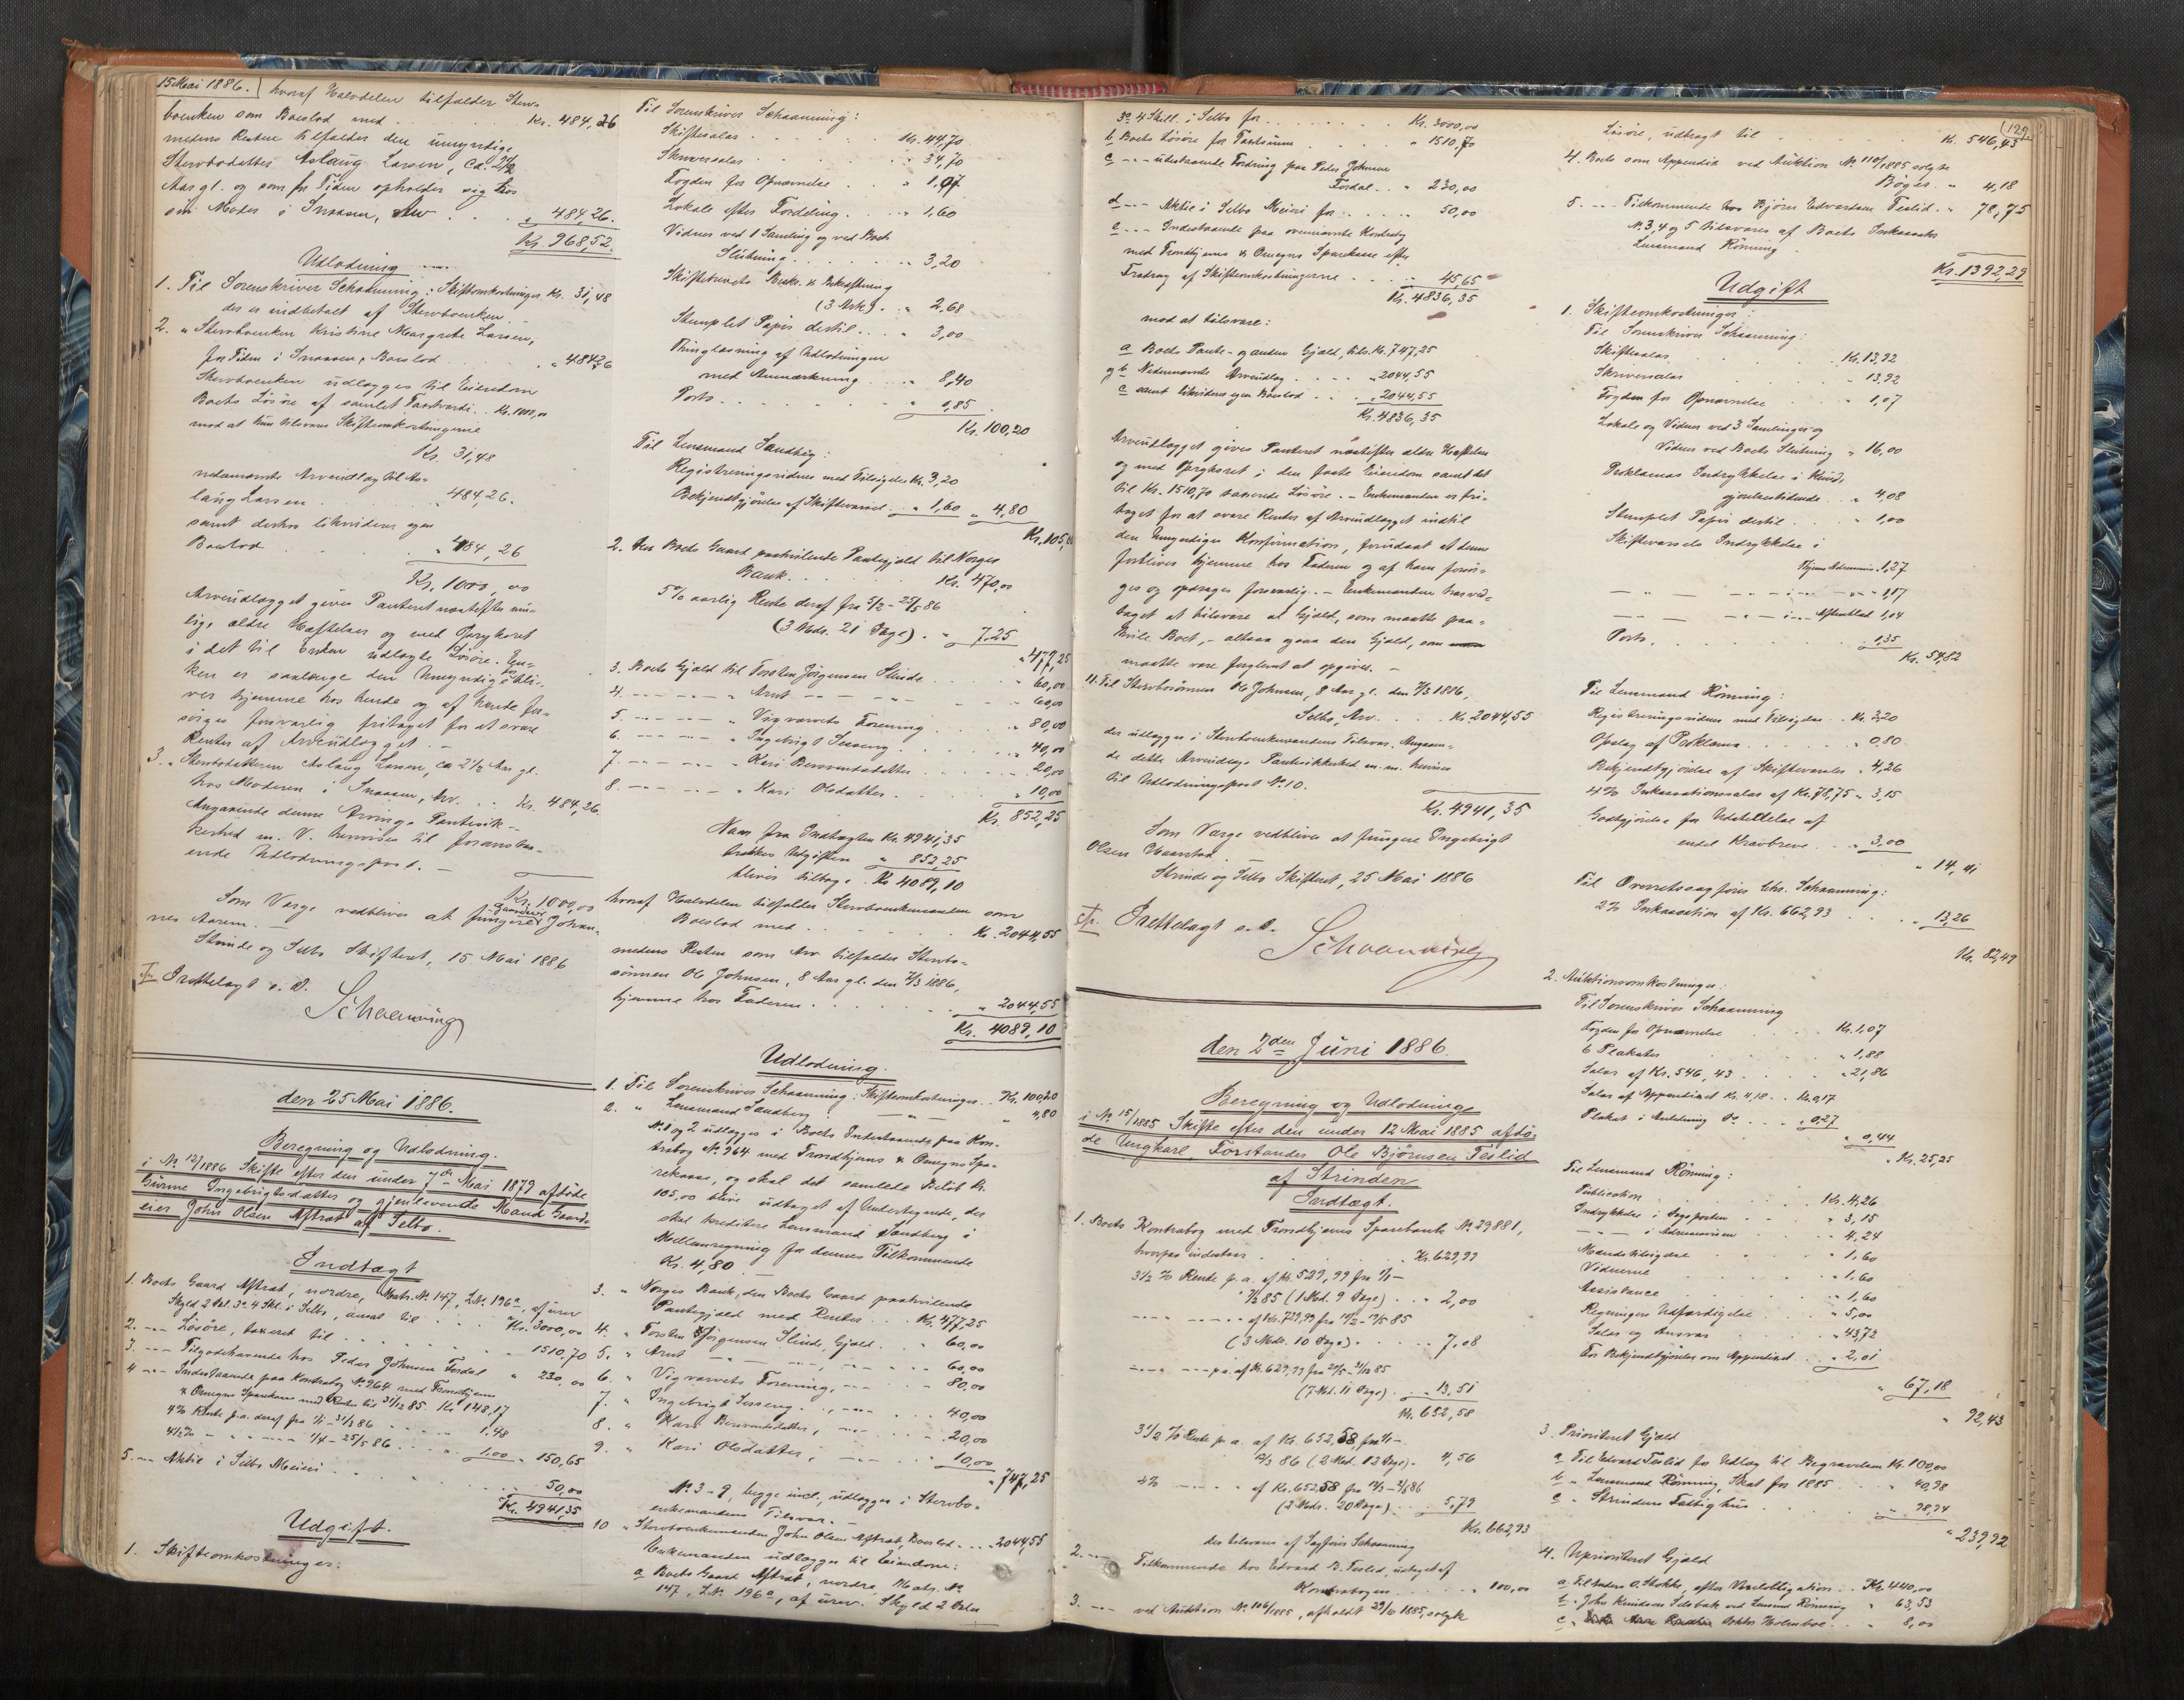 15 Mai 1886. hvoraf Halvdelen tilfalder Sterv-
boenken som Boeslod med . . . Kr. 484,26
medens Resten tilfalder den umyndige
Stervbodatter Aslaug Larsen, ca. 2½
Aar gl. og som for Tiden opholder sig hos
sin Moder i Snaasen, Arv . . . " 484,26.
Kr. 968,52.
Udlodning
1. Til Sorenskriver Schaanning: Skifteomkostninger Kr. 31,48
der er indbetalt af Stervboenken.
2. " Stervboenken Kristine Margrete Larsen,
for Tiden i Snaasen, Boeslod . . . " 484,26
Stervboenken udlægges til Eiendom
Boets Løsøre af samlet Taxtværdi . . Kr. 1000,00
mod at hun tilsvarer Skifteomkostningerne
Kr. 31,48
nedennævnte Arveudlæg til As-
laug Larsen . . . " 484,26.
samt derhos likviderer egen
Boeslod . . . " 484,26
Kr. 1000,00
Arveudlægget gives Panteret næstefter mu-
lig, ældre Hæftelser og med Oprykret
i det til Enken udlagte Løsøre. En-
ken er saalænge den Umyndige for bli-
ver hjemme hos hende og af hende for-
sørges forsvarlig fritaget for at svare
Renter af Arveudlægget. -
3. " Stervbodatteren Aslaug Larsen, ca 2½ Aar gl.
hos Moderen i Snaasen, Arv. . . Kr. 484,26.
Angaaende denne Arvings Pantesik-
kerhed m. V. henvises til foranstaa-
ende Udlodningspost. -
Kr. 1000,00
Som Værge vedbliver at fungere Gaardbr. Johan-
nes Aarem. -
Strinde og Selbo Skifteret, 15 Mai 1886
Irettelagt s. D.
Schaanning
den 25 Mai 1886.
Beregning og Udlodning.
i No 12/1886 Skifte efter den under 7de Mai 1879 afdøde
Gurine Ingebrigtsdatter og gjenlevende Mand Gaard-
eier John Olsen Aftret af Selbo.
Indtægt
1. Boets Gaard Aftret, nordre, Matr. No. 147, L.No. 196a, af urev.
Skyld 2 Dal. 3 o. 4 Skl. i Selbo, anset til . . . Kr. 3000,00
2. -- Løsøre, taxeret til . . . " 1510,70
3. -- Tilgodehavende hos Peder Johnsen Fordal " 230,00
4 -- Indestaaende paa Kontrabog No. 964 med Trondhjems
& Omegns Sparekasse med Renter til 31/12 85. Kr 148,17
4% Rente p.a. deraf fra 1/1 - 31/3 86 . . . " 1.48
4½% - " - " - 1/4 - 25/5 86 . . . " 1.00 " 150,65
5. -- Aktie i Selbo Meieri . . . 50,00
Kr. 4941,35
Udgift.
1. Skifteomkostninger:
Til Sorenskriver Schaanning:
Skiftesalær . . . Kr. 44,70
Skriversalær . . . " 34,70
Fogden for Opnævnelse . . . " 1,07
Lokale efter Fordeling . . . " 1,60
Vidner ved 1 Samling og ved Boets
Slutning . . . " 3,20
Skiftebrevets Beskr. & Bekræftning
(3 Ark) . " 2,68
Stemplet Papir dertil . . . " 3,00
Thinglæsning af Udlodningen
med Anmærkning . . . " 8,40
Porto . . . " 0,85
Kr. 100,20
Til Lensmand Sandberg:
Registreringsvidner med Tilsigelse Kr. 3,20
Bekjendtgjørelse af Skiftevarsel . . " 1,60 " 4,80
Kr. 105,00
2. Den Boets Gaard paahvilende Pantegjæld til Norges
Bank . . . Kr. 470,00
5% aarlig Rente deraf fra 5/2 - 25/5 86
(3 Mdr. 21 Dage) . " 7,25
" 477,25
3. Boets Gjæld til Torsten Jørgensen Slinde . . " 60,00
4. -- -- -- " Arnt -- -- . . " 60,00
5. -- -- -- " Vigvarvets Forening . . " 80,00
6. -- -- -- " Ingebrigt Sesseng . . . " 40,00
7. -- -- -- " Kari Berentsdatter . . . " 20,00
8. -- -- -- " Kari Olsdatter . . . " 10,00
Kr. 852,25
Naar fra Indtægten Kr. 4941,35
trækkes Udgiften " 852,25
bliver tilbage . Kr 4089,10
hvoraf Halvdelen tilfalder Stervboenkemanden som
Boeslod med . . . Kr. 2044,55
medens Resten som Arv tilfalder Stervbo-
sønnen Ole Johnsen, 8 Aar gl. den 7/3 1886,
hjemme hos Faderen . . . " 2044,55
Kr. 4089,10
Udlodning.
1. Til Sorenskriver Schaanning: Skifteomkostninger . . Kr. 100,20
2. " Lensmand Sandberg . . -"- . . " 4,80
No. 1 og 2 udlægges i Boets Indestaaende paa Kon-
trabog No. 964 med Trondhjems & Omegns Spa-
rekasse, og skal det samlede Beløb Kr.
105,00 blive udtaget af Undertegnede, der
skal kreditere Lensmand Sandberg i
Mellemregning for dennes Tilkommende
Kr. 4,80 . -
3. " Norges Bank, den Boets Gaard paahvilende
Pantegjæld med Renter . . . Kr. 477,25
4. " Torsten Jørgensen Slinde, Gjæld . . " 60,00
5. " Arnt -- -- , -- . . " 60,00
6. " Vigvarvets Forening, -- . . " 80,00
7. " Ingebrigt Sesseng, -- . . . 40,00
8. " Kari Berentsdatter, -- . . . 20,00
9. " Kari Olsdatter, -- . . . 10,00
" 747,25
No 3-9, begge incl., udlægges i Stervbo-
enkemandens Tilsvar. -
10 " Stervboenkemanden John Olsen Aftret, Boeslod . . . 2044,55
Enkemanden udlægges til Eiendom:
a Boets Gaard Aftret, nordre, Matr. No.
147, L.No. 196a, af urev. Skyld 2 Daler
129
3 o. 4 Skill. i Selbo for . . . Kr. 3000,00
b. Boets Løsøre for Taxtsum . . . " 1510,70
c --- udestaaende Fordring paa Peder Johnsen
Fordal . . " 230,00
d --- Aktie i Selbo Meieri for . . . 50,00
e. --- Indestaaende paa ovennævnte Kontrabog
med Trondhjems & Omegns Sparekasse efter
Fradrag af Skifteomkostningerne . . . 45,65
Kr. 4836,35
mod at tilsvare:
a Boets Pante- og anden Gjæld, tils. Kr. 747,25
og b Nedennævnte Arveudlæg . . . " 2044,55
c samt likviderer egen Boeslod . . . " 2044,55
Kr. 4836,35
Arveudlægget gives Panteret næstefter ældre Hæftelser
og med Oprykret i den faste Eiendom samt det
til Kr. 1510,70 taxerede Løsøre. - Enkemanden er fri-
taget for at svare Renter af Arveudlægget indtil
den Umyndiges Konfirmation, forudsat at denne
forbliver hjemme hos Faderen og af ham forsør-
ges og opdrages forsvarlig. - Enkemanden har ved-
taget at tilsvare al Gjæld, som maatte paa-
hvile Boet, - altsaa ogsaa den Gjæld, som
maatte være forglemt at opgives. -
11. Til Stervbosønnen Ole Johnsen, 8 Aar gl. den 7/3 1886,
Selbo, Arv . . . Kr. 2044,55
der udlægges i Stervboenkemandens Tilsvar. Angaaen-
de dette Arveudlægs Pantesikkerhed m. m. henvises
til Udlodningspost No. 10.
Kr. 4941,35
Som Værge vedbliver at fungere Ingebrigt
Olsen Haarstad
Strinde og Selbo Skifteret, 25 Mai 1886
Irettelagt s. D.
Schaanning
den 2den Juni 1886.
Beregning og Udlodning
i No 15/1885 Skifte efter den under 12 Mai 1885 afdø-
de Ungkarl, Forstander Ole Bjørnsen Teslid
af Strinden
Indtægt.
1. Boets Kontrabog med Trondhjems Sparebank No 29881,
hvorpaa indestaar . . . Kr. 629,99
3½ % Rente p. a. af Kr. 529,99 fra 1/1 -
(1 Md. 9 Dage) . . " 2,00
(3 Mdr. 10 Dage) . . . 7,08
--- p.a. af Kr. 629,99 fra 20/5 - 31/12 85
(7 Md. 11 Dage) . . " 13,51
Kr. 652,58
3½ % Rente p. a. af Kr. 652,58, fra 1/1 -
12/3 86 (2 Md. 12 Dage) . 4,56
4% --- af Kr. 652,58 fra 12/3 - 2/6 86
(2 Mdr. 20 Dage) . . 5,79
Kr. 662,93
der tilsvares af Sagfører Schaanning
2. -- Tilkommende hos Edvard B. Teslid, udtaget af
Kontrabogen . . . " 100,00
3. -- ved Auktion No. 106/1885, afholdt 29/10 1885, solgte
Løsøre, udbragt til . . . Kr. 546,43
4. Boets som Appendix ved Auktion No. 110/1885 solgte
Bøger . . " 4,18
5. --- Tilkommende hos Bjørn Edvardsen Teslid . " 78,75
No. 3, 4 og 5 tilsvares af Boets Inkassator
Lensmand Rønning
Kr. 1392,29
Udgift
1. Skifteomkostninger:
Til Sorenskriver Schaanning:
Skiftesalær . . . Kr. 13,92
Skriversalær . . . " 13,92
Fogden for Opnævnelse . . . " 1,07
Lokale og Vidner ved 3 Samlinger og
Vidner ved Boets Slutning " 16,00
Proklamas Indrykkelse i Kund-
gjørelsestidende . . " 4,08
Stemplet Papir dertil . . . " 1,00
Skiftevarsels Indrykkelse i
Thjems Adresseavis . 1,27
-- " -- " -- i -- " -- " 1,17
-- " -- " -- i -- Aftenblad 1,04
Porto . . . 1,35
Kr. 54,82
Til Lensmand Rønning:
Registreringsvidner med Tilsigelse . . Kr. 3,20
Opslag af Proklama . . . " 0,80
Bekjendtgjørelse af Skiftevarsler " 4,26
4% Inkassationssalær af Kr. 78,75 " 3,15
Godtgjørelse for Udstedelse af
endel Kravbreve . . . " 3,00
" 14,41
Til Overretssagfører Chr. Schaanning:
2% Inkassation af Kr. 662,93 . . . " 13,26
Kr. 82,49
2. Auktionsomkostninger:
Til Sorenskriver Schaanning
Fogden for Opnævnelse . . . Kr. 1,07
6 Plakater . . . " 1,88
Salær af Kr. 546,43 . . . " 21,86
Salær af Appendixet Kr. 4,18 . . Kr. 0,17
Plakat i Anledning D. . . " 0,27
" 0,44
" Kr. 25,25
Til Lensmand Rønning:
Publication . . . Kr. 4,26
Indrykkelse i Dagsposten . . . " 3,15
-- " -- i Adresseavisen . . . " 4,24
Mandstilsigelse . . . " 1,60
Vidnerne . . . " 1,60
Assistance . . . " 1,60
Regningers Udfærdigelse . . . " 5,00
Salær og Ansvar . . . " 43,72
For Bekjendtgjørelse om Appendixet . . " 2,01
" 67,18
" 92,43
3. Prioriteret Gjæld
a Til Edvard Teslid for Udlæg til Begravelsen Kr. 100,00
b " Lensmand Rønning, Skat for 1885 . . " 40,98
c " Strindens Fattighus . . . " 98,94
" 239,92
4. Uprioriteret Gjæld
a Til Anders O. Stokke, efter Vexelobligation . . Kr. 440,00
b " John Knudsen Selsbak ved Lensmand Rønning " 63,53
c " Doktor Holmboe . . . " 8,00